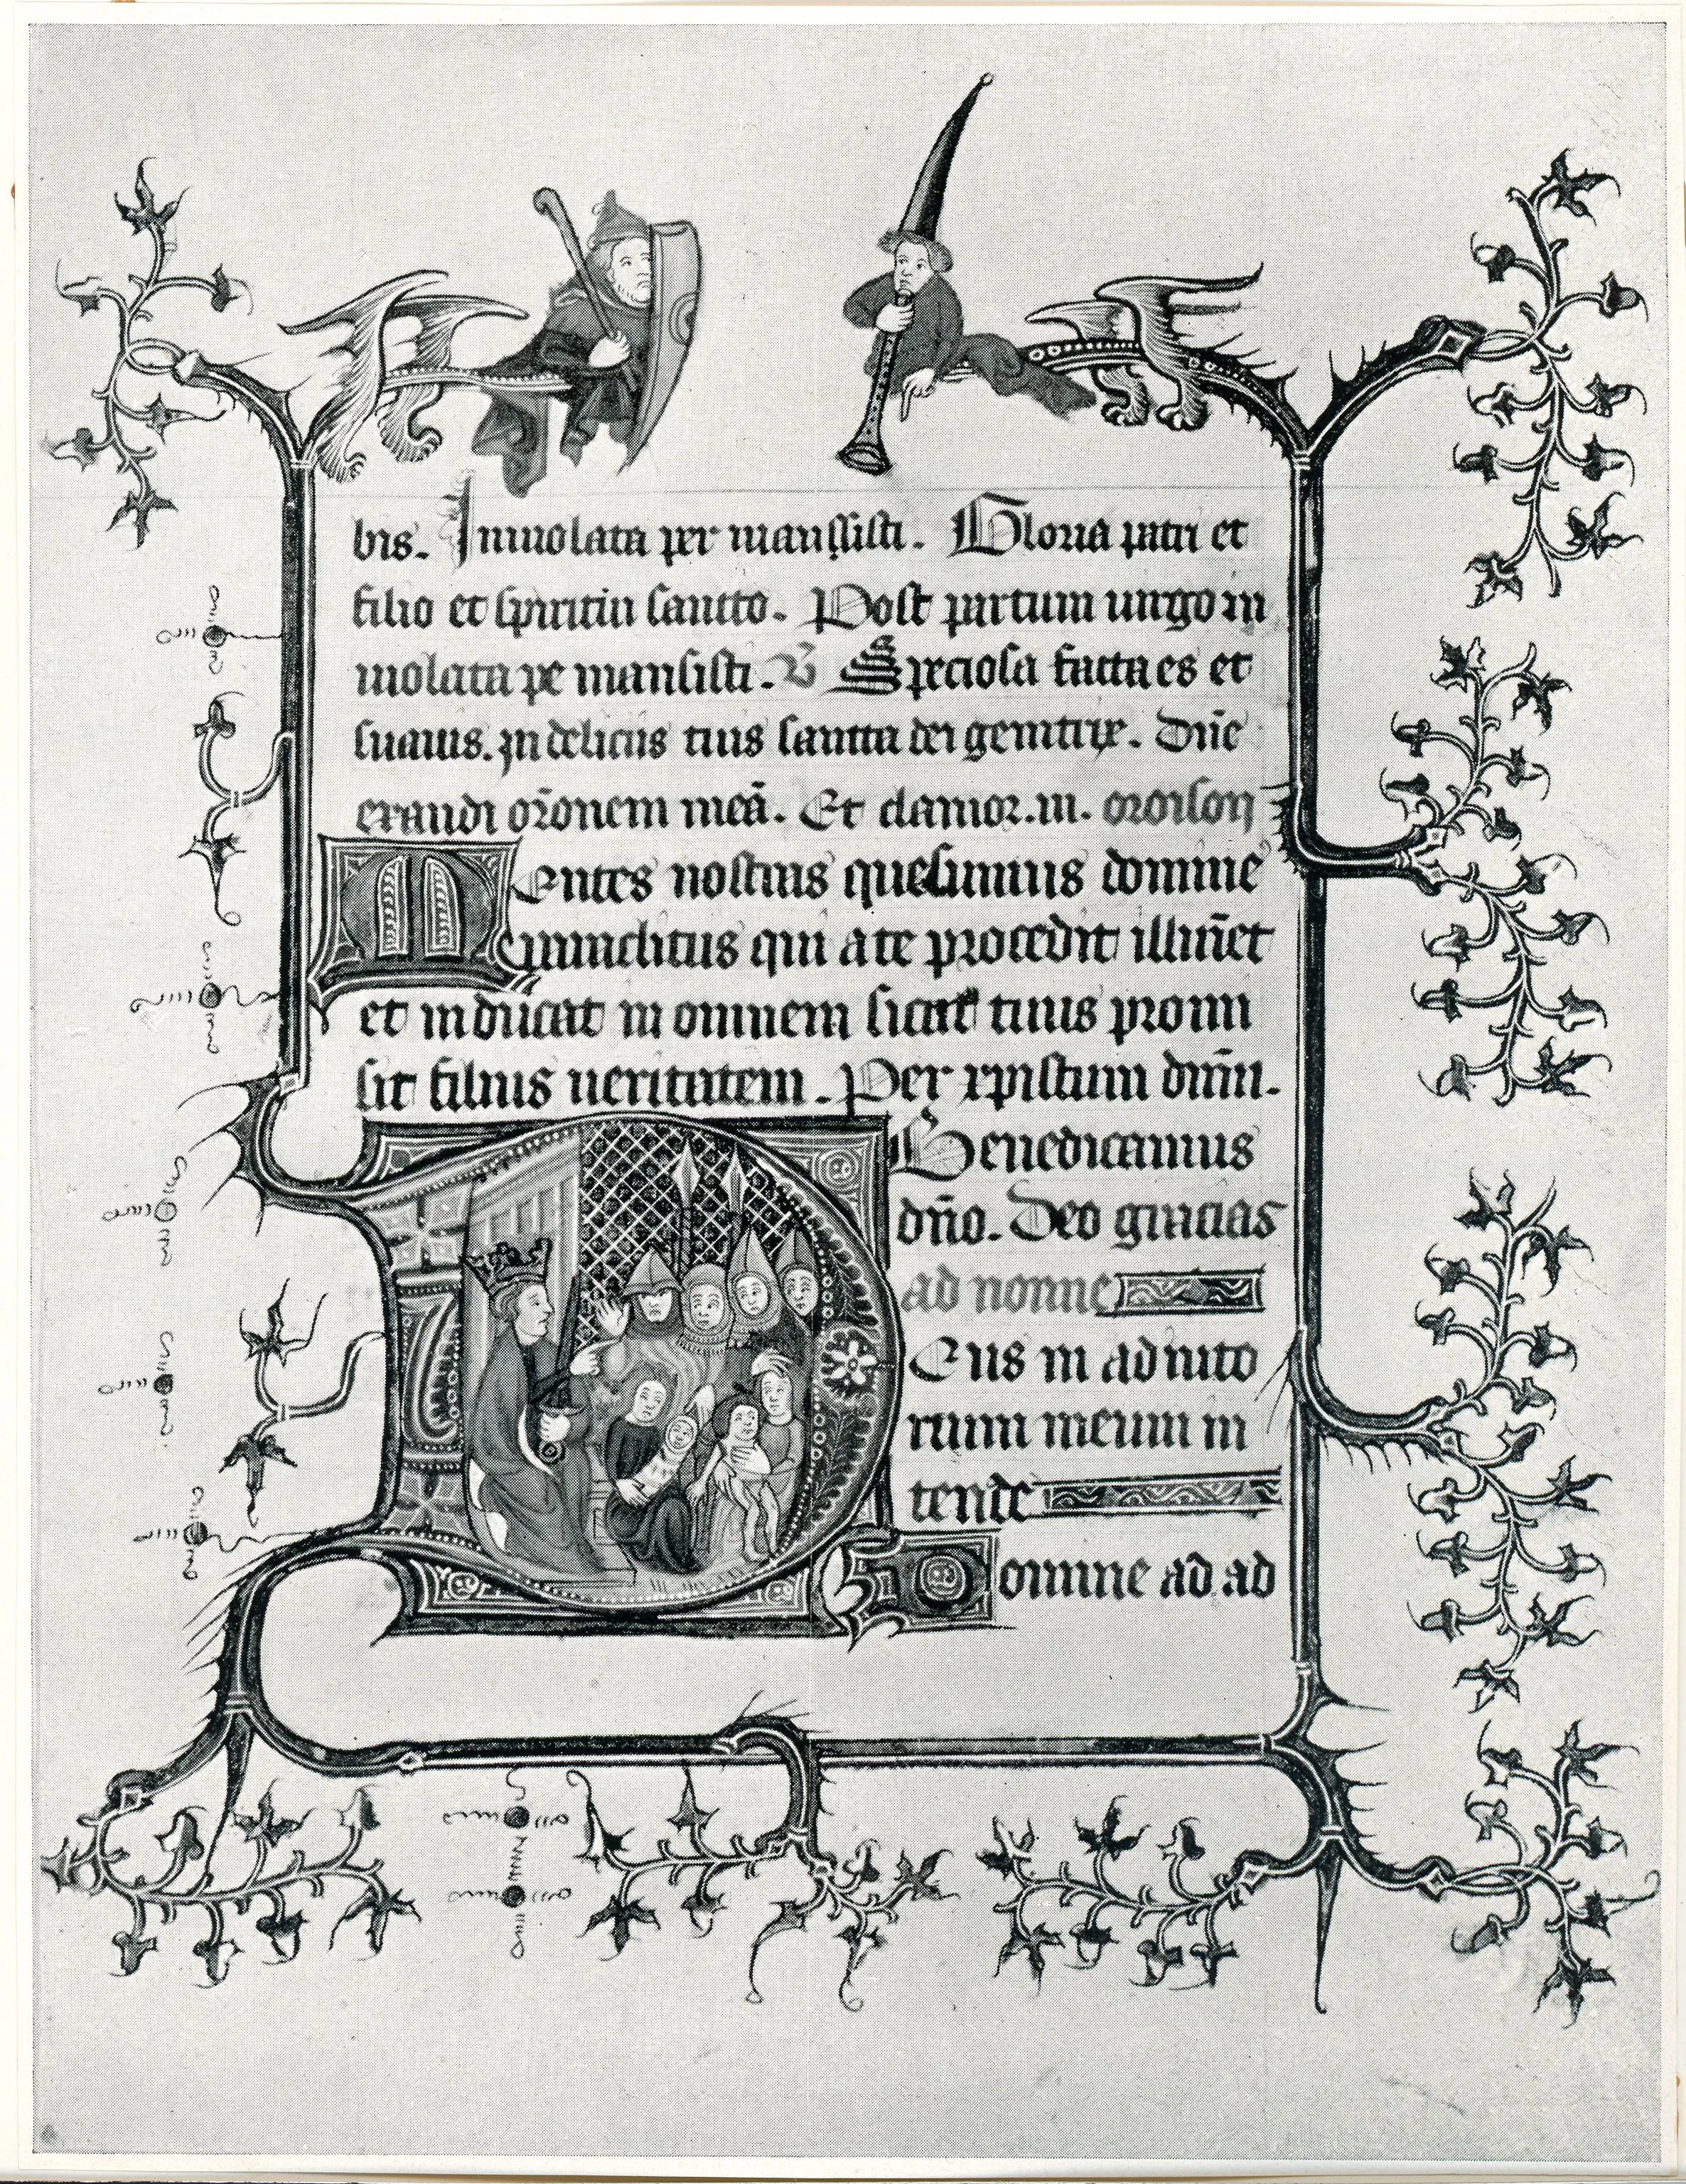 bis. Inuiolata per manssisti. Gloria patri et
filio et spiritui sancto. Post partum uirgo in
uiolata pe mansisti. V Speciosa facta es et
suauis. In deliciis tuis sancta dei genitrix. Dñe
exaudi orõnem meã. Et clamor. m. oroison
Mentes nostras quesumus domine
qui a te procedit illuñet
et inducat in omnem sicut tuus promi
sit filius ueritatem. Per xpistum dm̃m.
Benedicamus
dño. Deo gracias
ad nonne
Deus in adiuto
rium meum in
tende
Domine ad ad